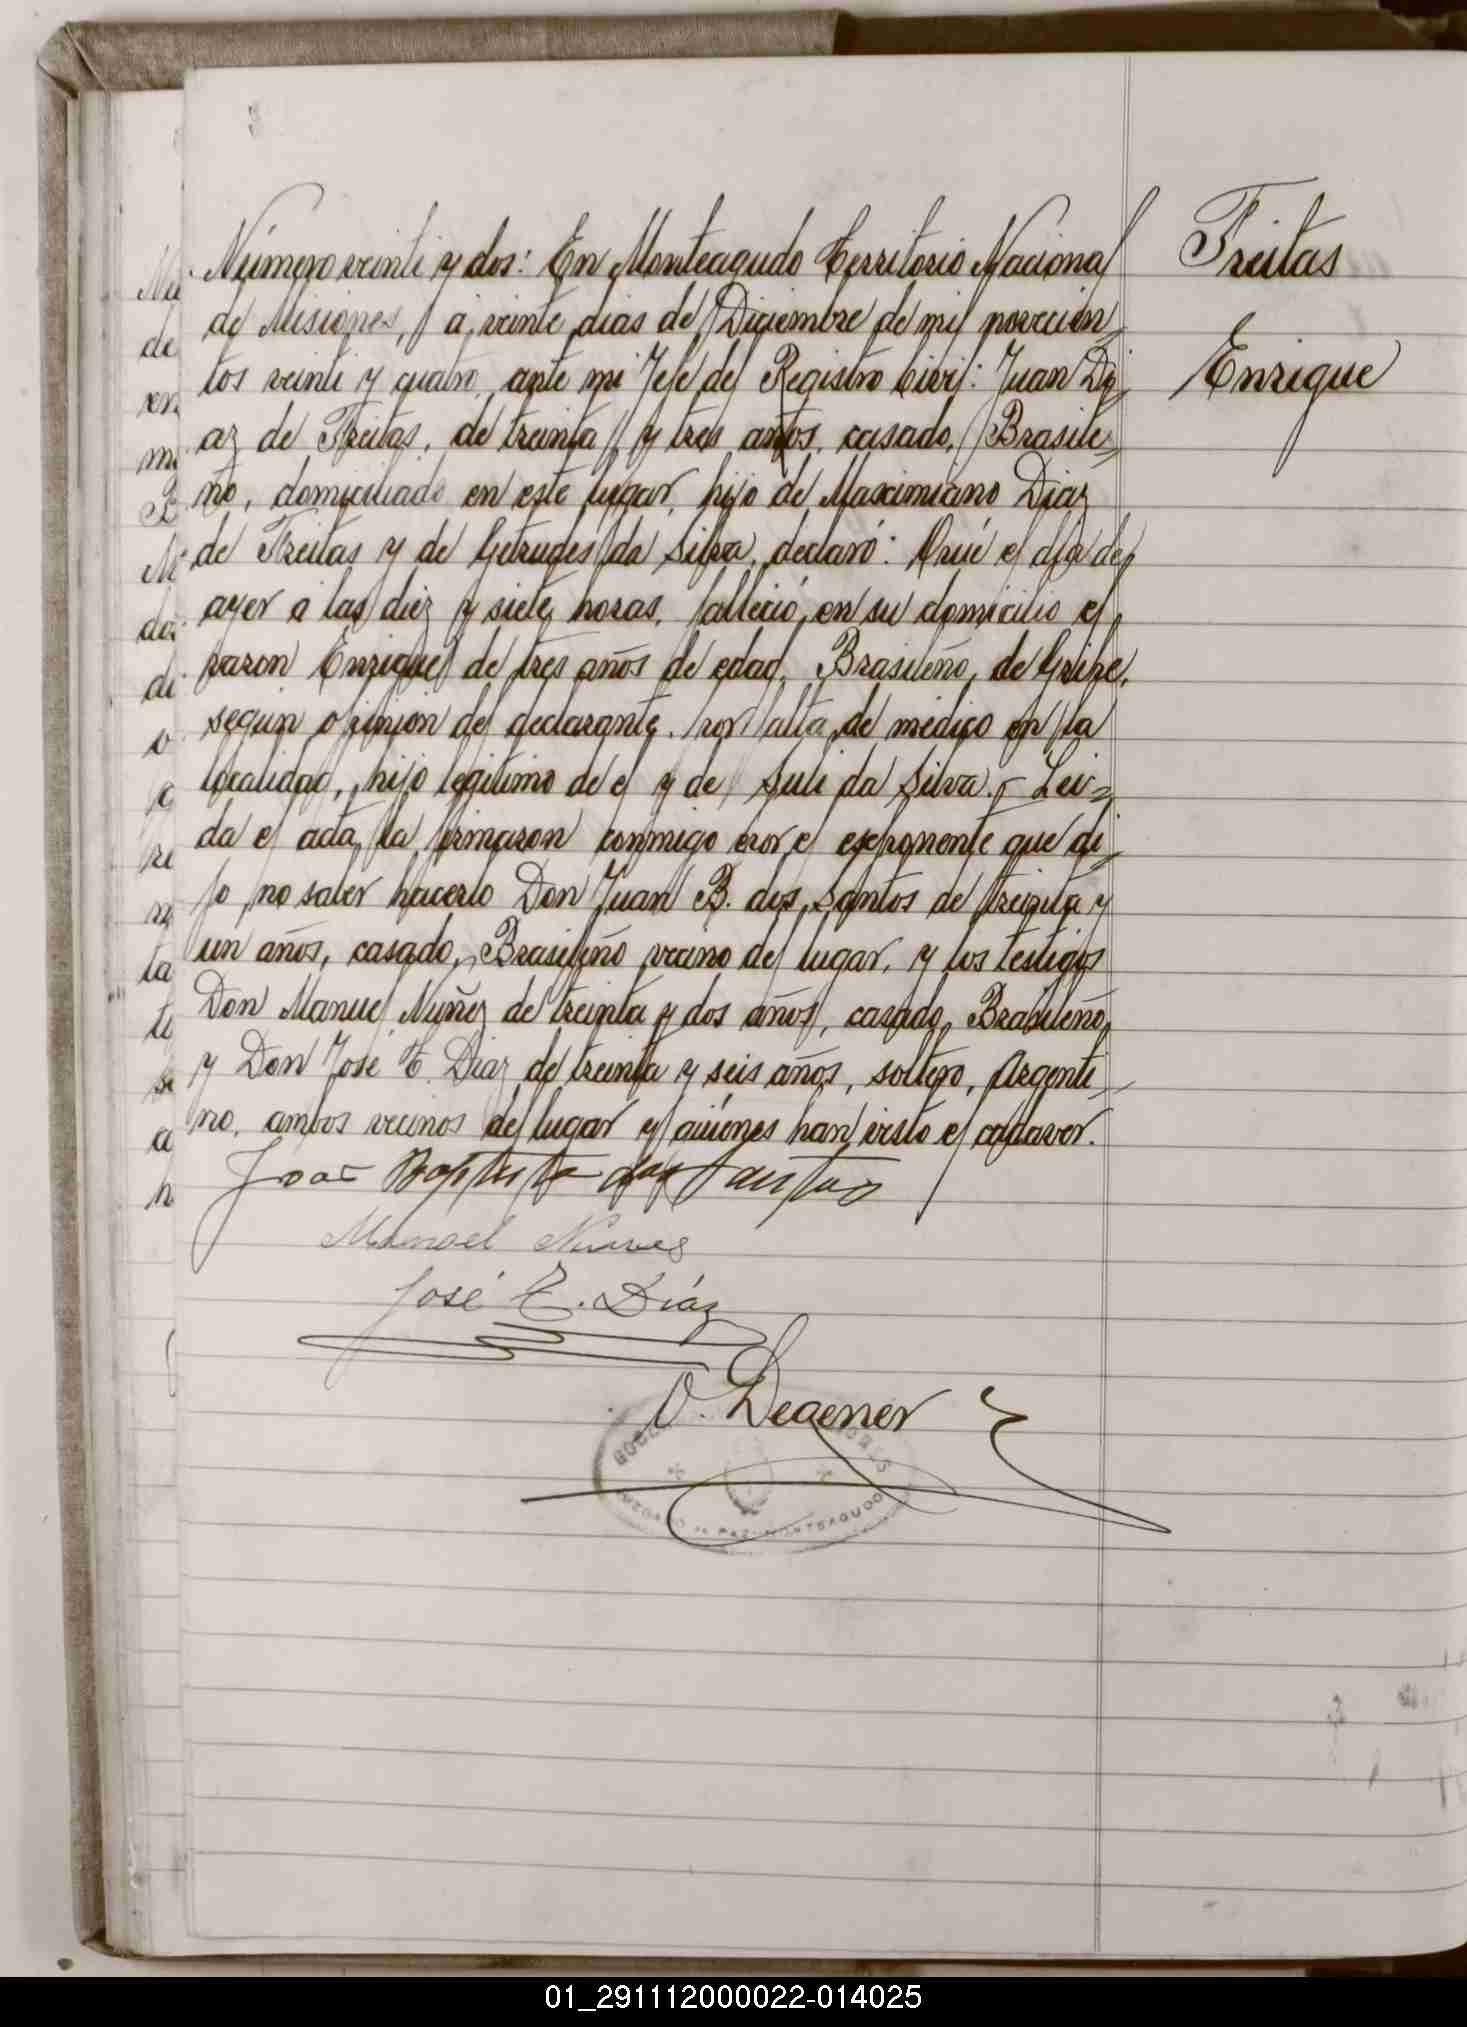 Freitas
Enrique
Número veinti y dos: En Monteagudo Territorio Nacional
de Misiones, a veinte dias de Diciembre de mil novecien=
tos veinti y cuatro, ante mi Jefe del Registro Civil: Juan Di=
az de Freitas, de treinta y tres años, casado, Brasile=
ño, domiciliado en este lugar, hijo de Maximiano Diaz
de Freitas y de Getrudes da Silva, declaró: Qué el dia de
ayer a las diez y siete horas, falleció en su domicilio el
varon Enrique de tres años de edad, Brasileño, de Gripe,
segun opinion del declarante, por falta de médico en la
localidad, hijo legitimo de el y de Juli da Silva. - Lei=
da el acta, la firmaron conmigo por el exponente que di=
jo no saber hacerlo Don Juan B. dos Santos de treinta y
un años, casado, Brasileño vecino del lugar, y los testigos
Don Manuel Nuñez de treinta y dos años, casado, Brasileño,
y Don José E. Diaz de treinta y seis años, soltero, Argenti=
no, ambos vecinos del lugar y quiénes han visto el cadaver.
Joao Baptista dos Santos
Manoel Nunes
José E. Díaz
O. Degener
JUZGADO DE PAZ MONTEAGUDO
01_291112000022-014025